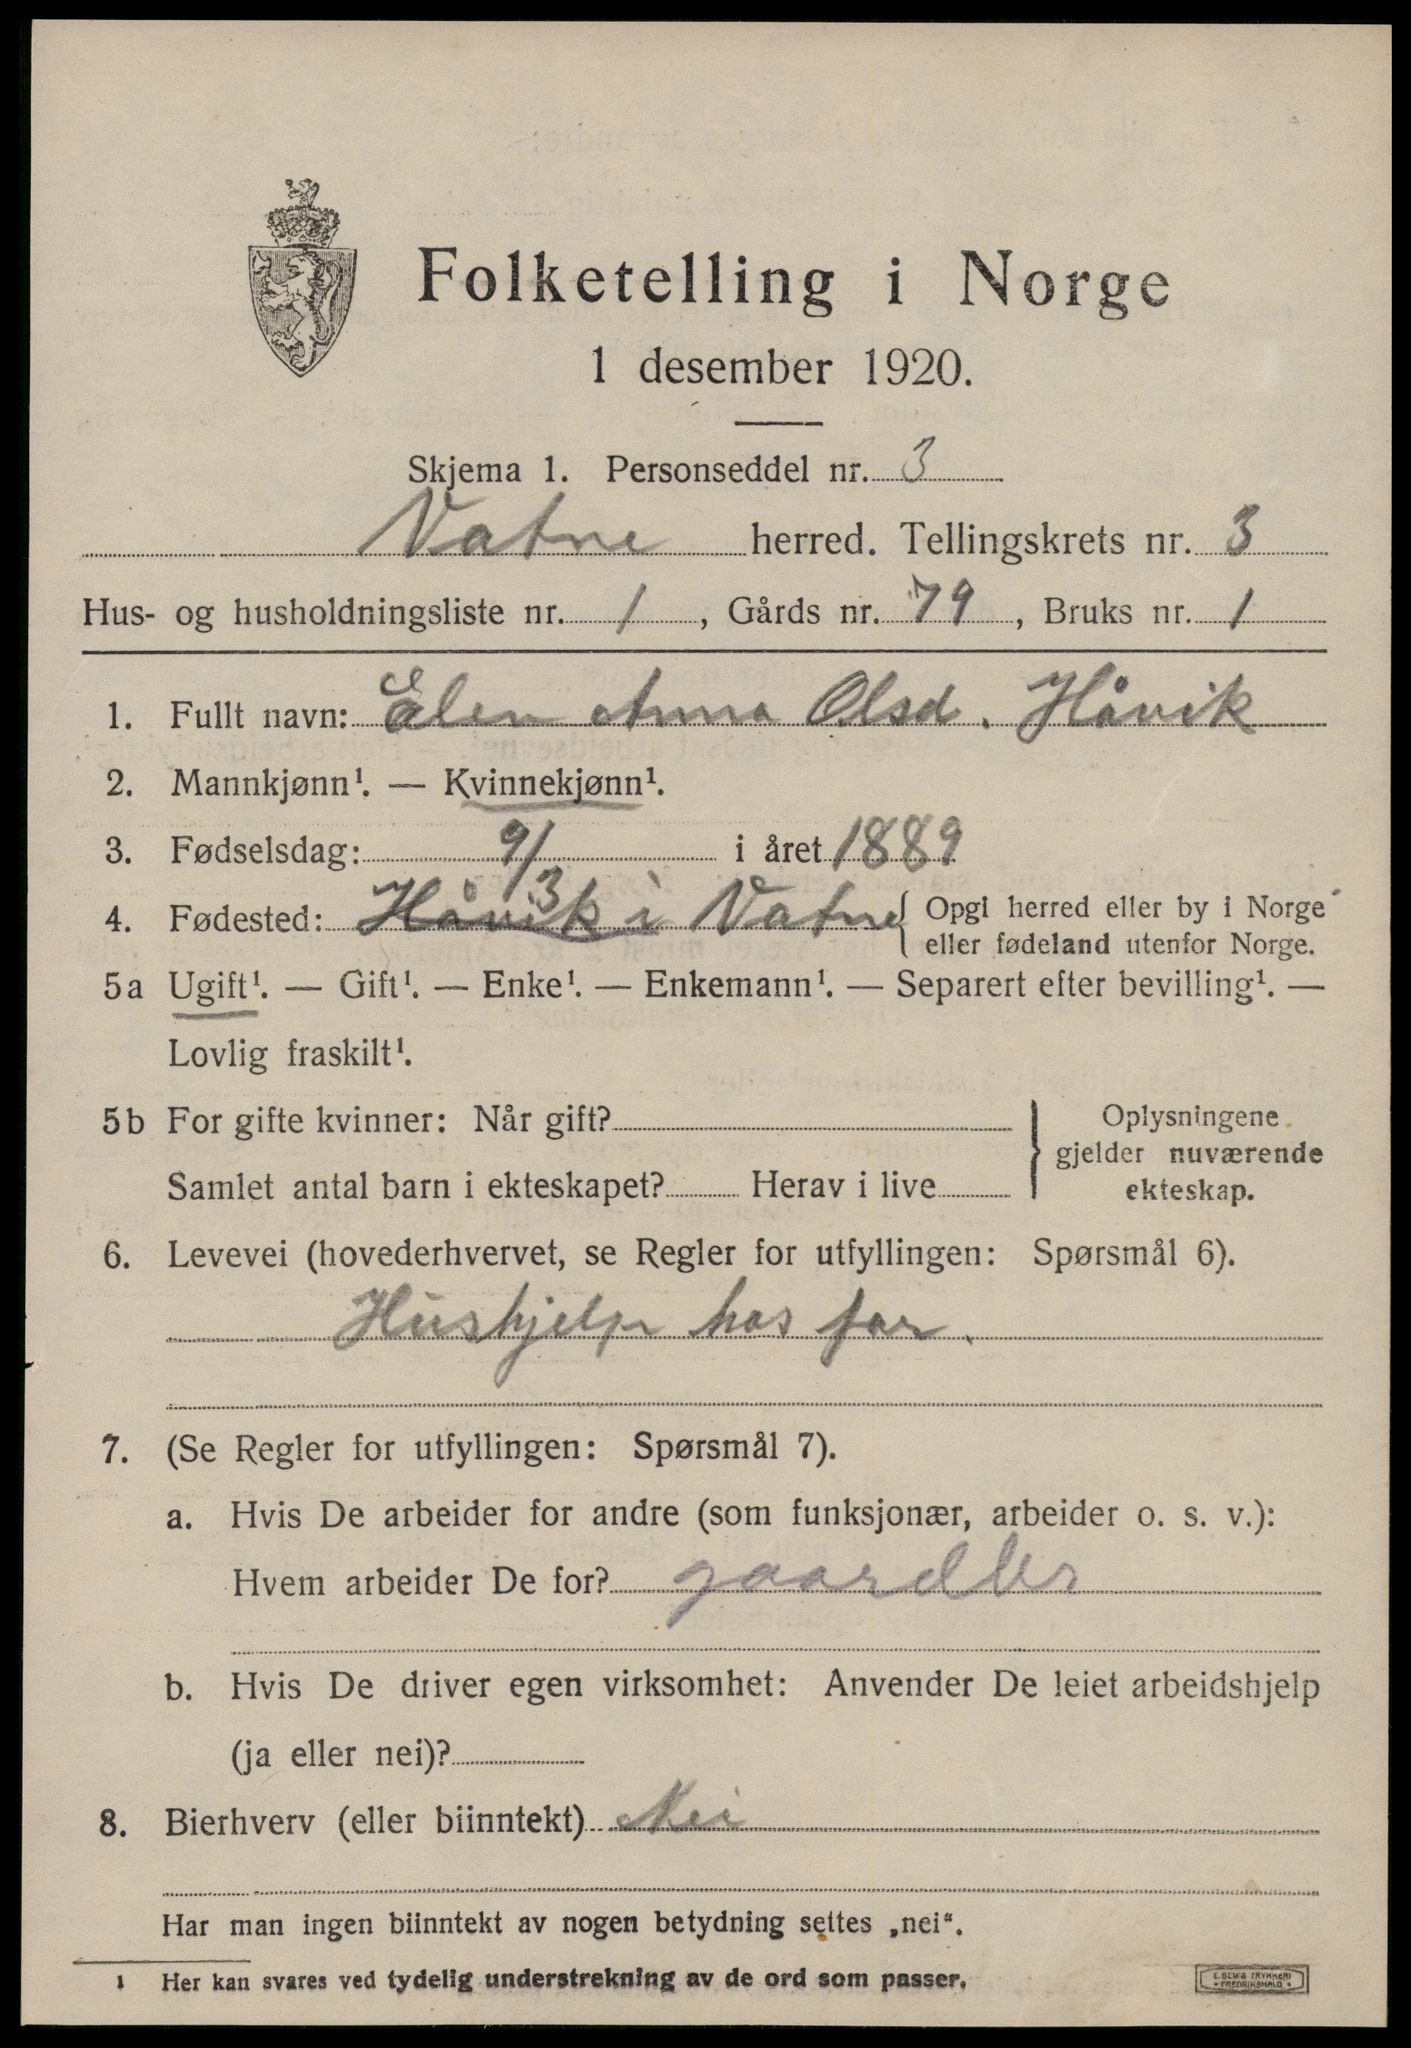 Folketelling i Norge
1 desember 1920.
Skjema 1. Personseddel nr. 3
Vatne herred. Tellingskrets nr. 3
Hus- og husholdningsliste nr. 1, Gårds nr. 79, Bruks nr. 1
1. Fullt navn: Elen Anna Olsd. Håvik
2. Mannkjønn¹. — Kvinnekjønn¹.
3. Fødselsdag: 9/3 i året 1889
4. Fødested: Håvik i Vatne { Opgi herred eller by i Norge
eller fødeland utenfor Norge.
5a Ugift¹. — Gift¹. — Enke¹. — Enkemann¹. — Separert efter bevilling¹. —
Lovlig fraskilt¹.
5b For gifte kvinner: Når gift?
Samlet antal barn i ekteskapet? Herav i live
} Oplysningene
gjelder nuværende
ekteskap.
6. Levevei (hovederhvervet, se Regler for utfyllingen: Spørsmål 6).
Hushjelp hos far.
7. (Se Regler for utfyllingen: Spørsmål 7).
a. Hvis De arbeider for andre (som funksjonær, arbeider o. s. v.):
Hvem arbeider De for? gaardbr
b. Hvis De driver egen virksomhet: Anvender De leiet arbeidshjelp
(ja eller nei)?
8. Bierhverv (eller biinntekt) Nei
Har man ingen biinntekt av nogen betydning settes „nei“.
1 Her kan svares ved tydelig understrekning av de ord som passer.
E. SEM'S TRYKKERI
• FREDRIKSHALD •